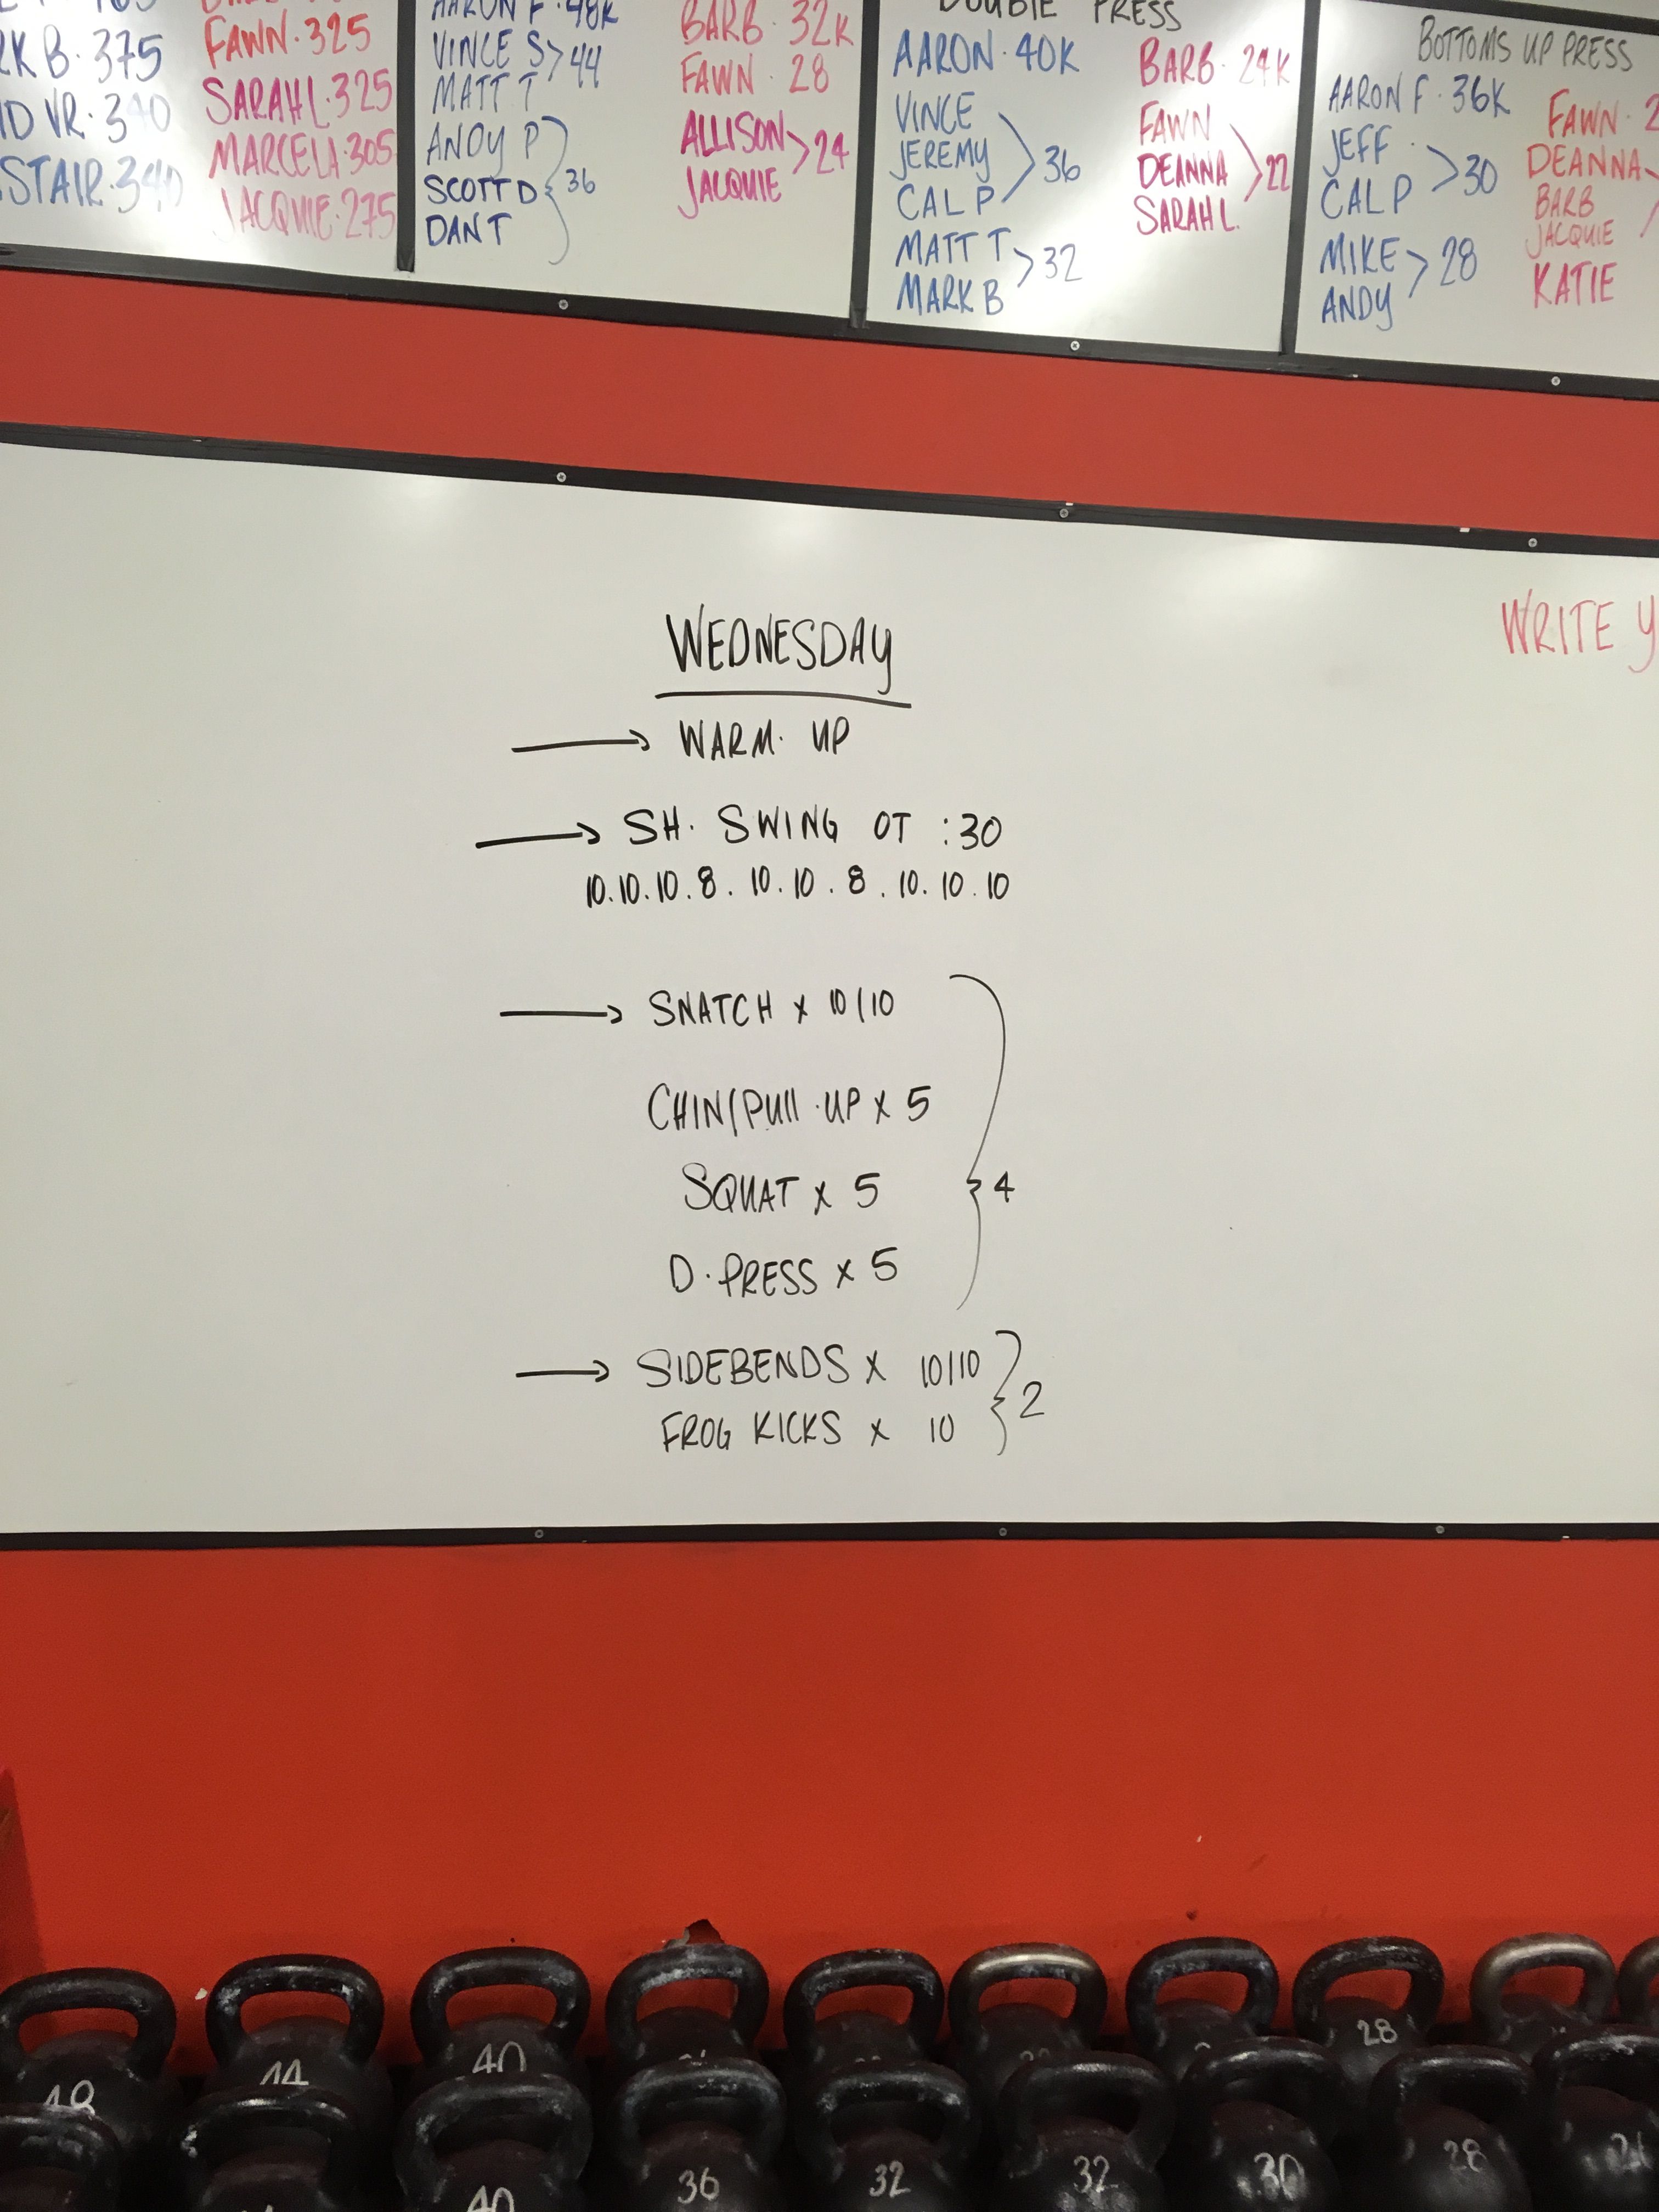 RK B. 375
VR. 340
STAIR. 340
FAWN. 325
SARAH L. 325
MARCELA. 305
JACQUIE. 275
AARON F. 48K
VINCE S > 44
MATT T
ANDY P
SCOTT D } 36
DAN T
BARB. 32K
FAWN. 28
ALLISON > 24
JACQUIE
DOUBLE PRESS
AARON. 40K
VINCE
JEREMY > 36
CAL P
MATT T > 32
MARK B
BARB. 24K
FAWN
DEANNA > 22
SARAH L.
BOTTOMS UP PRESS
AARON F. 36K
JEFF > 30
CAL P
MIKE > 28
ANDY
FAWN. 2
DEANNA
BARB
JACQUIE
KATIE
WRITE Y
WEDNESDAY
→ WARM. UP
→ SH. SWING OT :30
10. 10. 10. 8. 10. 10. 8. 10. 10. 10
→ SNATCH x 10/10
CHIN/PULL.UP x 5
SQUAT x 5 } 4
D. PRESS x 5
→ SIDEBENDS x 10/10 } 2
FROG KICKS x 10
48 44 40 28
40 36 32 32 30 28